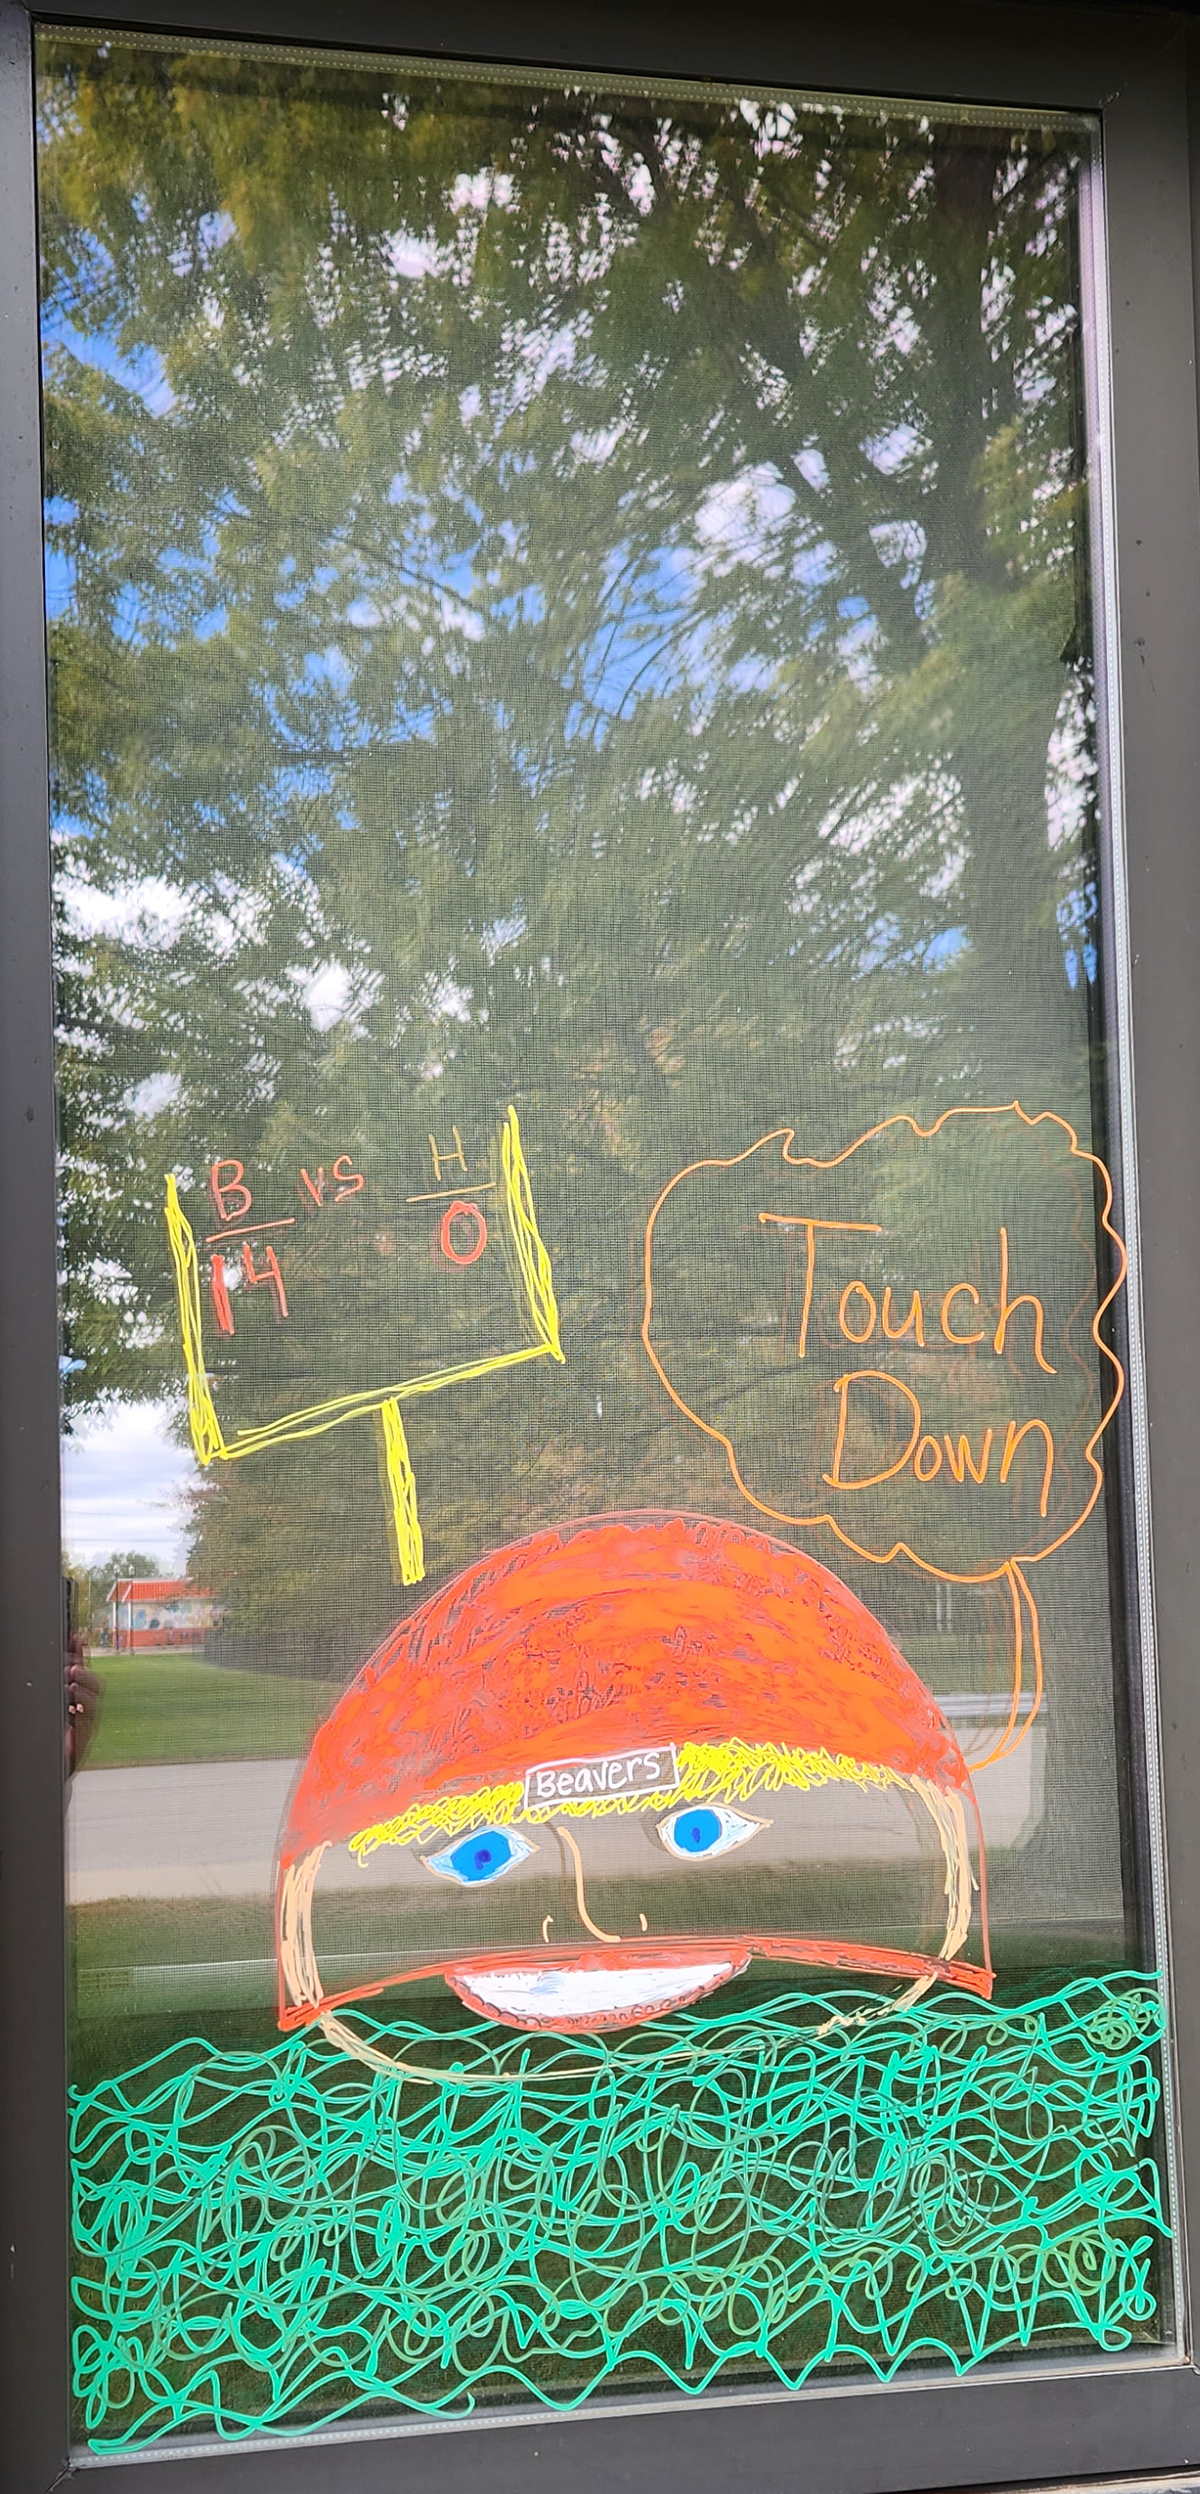 B vs H
14 0
Touch
Down
Beavers